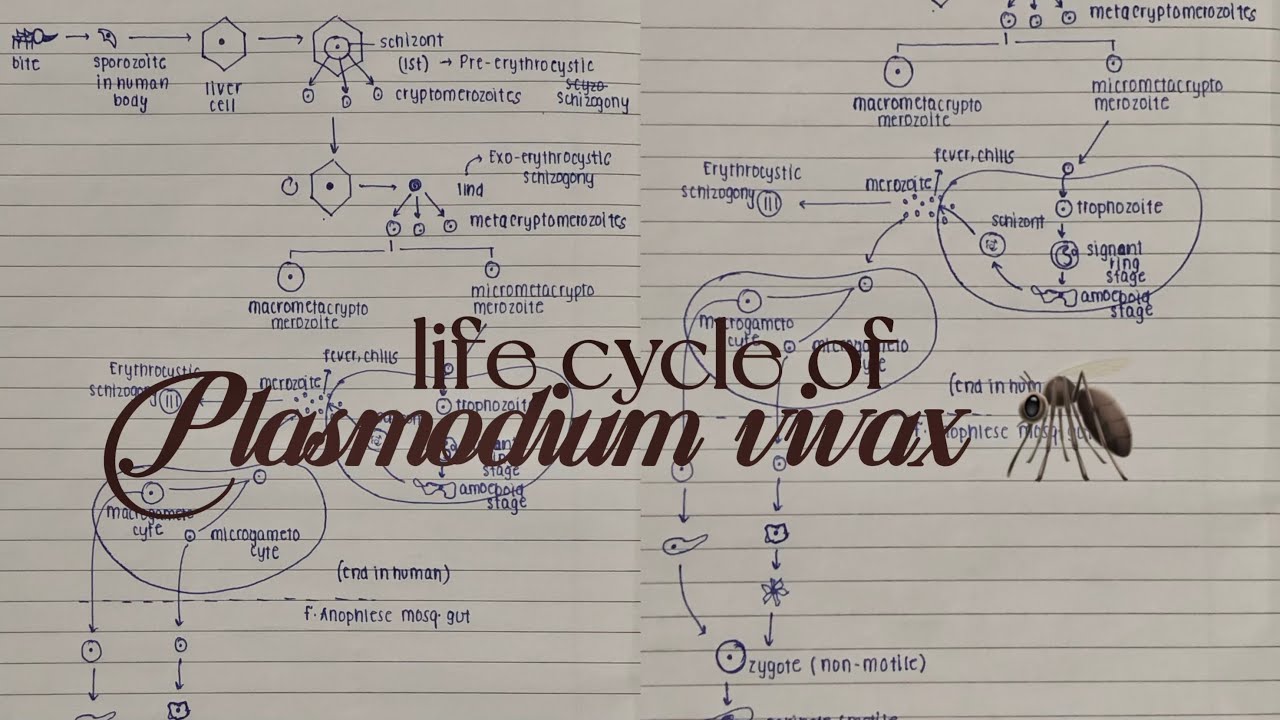 bite
sporozoite
in human
body
liver
cell
schizont
(Ist) → Pre-erythrocystic
schizogony
cryptomerozoites
Exo-erythrocystic
schizogony
IInd
metacryptomerozoites
macrometacrypto
merozoite
micrometacrypto
merozoite
fever, chills
Erythrocystic
schizogony III
merozoite
trophozoite
ring
stage
amoeboid
stage
macrogameto
cyte
microgameto
cyte
(end in human)
f. Anophlese mosq. gut
metacryptomerozoites
macrometacrypto
merozoite
micrometacrypto
merozoite
fever, chills
Erythrocystic
schizogony III
merozoite
trophozoite
schizont
signant
ring
stage
amoeboid
stage
macrogameto
cyte
microgameto
cyte
(end in hum
f. Anophlese mosq. gut
zygote (non-motile)
life cycle of
Plasmodium vivax